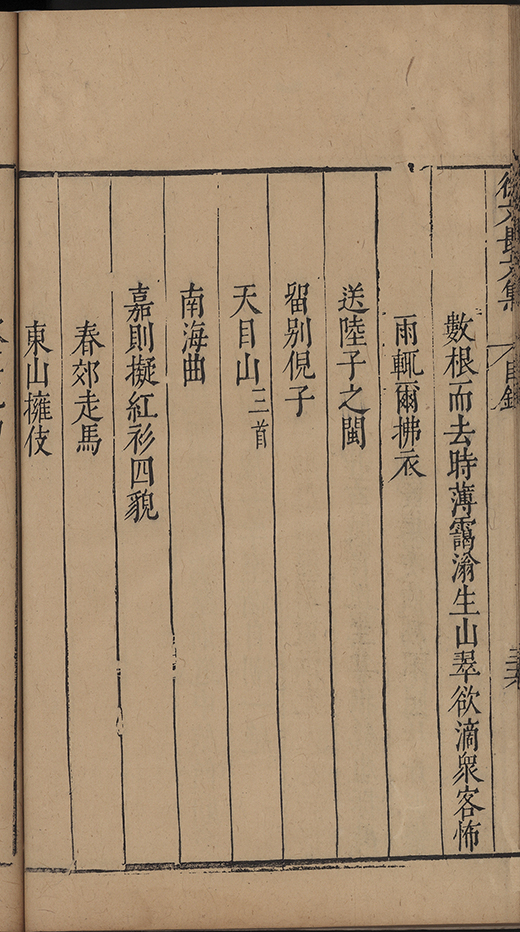 徐文長文集 目錄
數根而去時薄靄滃生山翠欲滴衆客怖
雨輒爾拂衣
送陸子之閩
留别倪子
天目山三首
南海曲
嘉則擬紅衫四貌
春郊走馬
東山擁伎